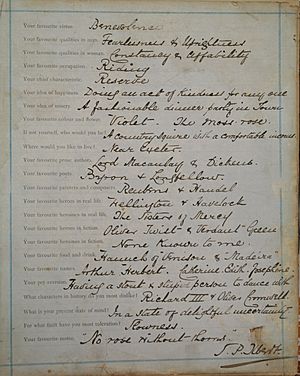 Your favourite virtue. Benevolence
Your favourite qualities in man. Fearlessness & Uprightness
Your favourite qualities in woman. Constancy & Affability
Your favourite occupation. Riding
Your chief characteristic. Reserve
Your idea of happiness. Doing an act of Kindness to any one
Your idea of misery. A fashionable dinner party in Town
Your favourite colour and flower. Violet. The Moss rose.
If not yourself, who would you be? A country Squire with a comfortable income
Where would you like to live? Near Exeter.
Your favourite prose authors. Lord Macaulay & Dickens.
Your favourite poets. Byron & Longfellow.
Your favourite painters and composers. Reubens & Handel
Your favourite heroes in real life. Wellington & Havelock
Your favourite heroines in real life. The Sisters of Mercy
Your favourite heroes in fiction. Oliver Twist & Verdant Green
Your favourite heroines in fiction. None Known to me.
Your favourite food and drink. Haunch of Venison & "Madeira"
Your favourite names. Arthur Herbert. Catherine Edith Josephine
Your pet aversion. Having a stout & stupid person to dance with
What characters in history do you most dislike? Richard III & Oliver Cromwell
What is your present state of mind? In a state of delightful uncertainty
For what fault have you most toleration? Slowness.
Your favourite motto. "No rose without thorns"